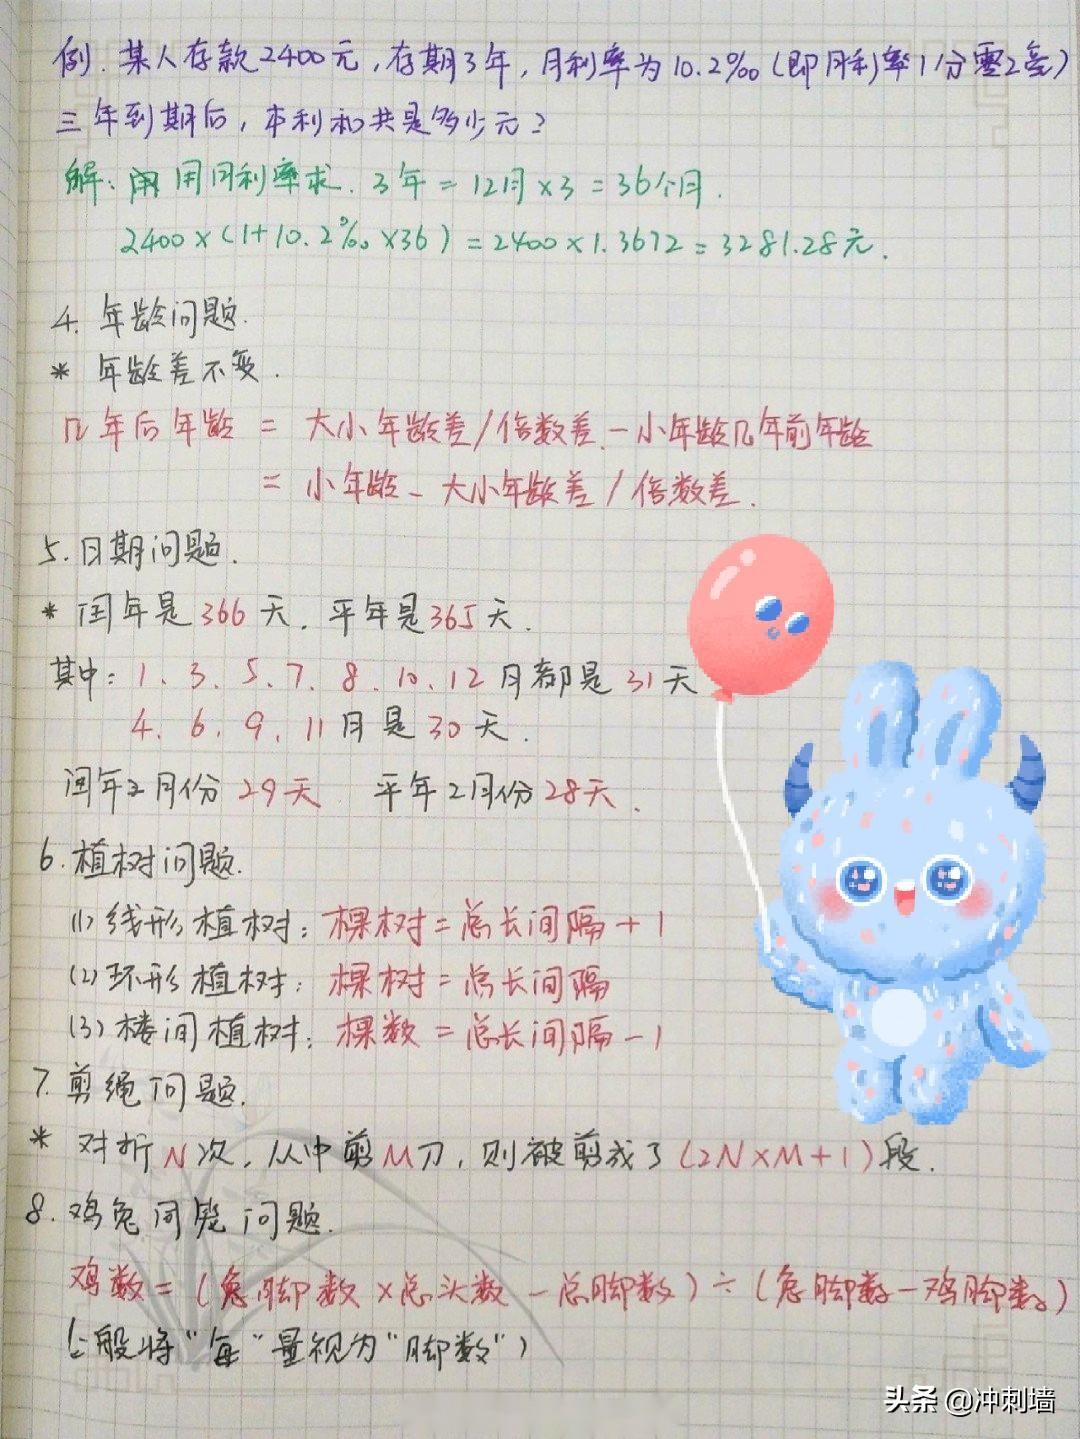 例.某人存款2400元,存期3年,月利率为10.2‰(即月利率1分零2毫)
三年到期后,本利和共是多少元?
解:用月利率求.3年=12月×3=36个月.
2400×(1+10.2‰×36)=2400×1.3672=3281.28元.
4.年龄问题.
* 年龄差不变.
几年后年龄=大小年龄差/倍数差-小年龄几年前年龄
=小年龄-大小年龄差/倍数差.
5.日期问题.
* 闰年是366天.平年是365天.
其中:1、3、5、7、8、10、12月都是31天
4、6、9、11月是30天.
闰年2月份29天 平年2月份28天.
6.植树问题.
(1)线形植树:棵树=总长间隔+1
(2)环形植树:棵树=总长间隔
(3)楼间植树:棵数=总长间隔-1
7.剪绳问题.
* 对折N次,从中剪M刀,则被剪成了(2N×M+1)段.
8.鸡兔同笼问题.
鸡数=(兔脚数×总头数-总脚数)÷(兔脚数-鸡脚数)
(一般将"每"量视为"脚数")
头条@冲刺墙